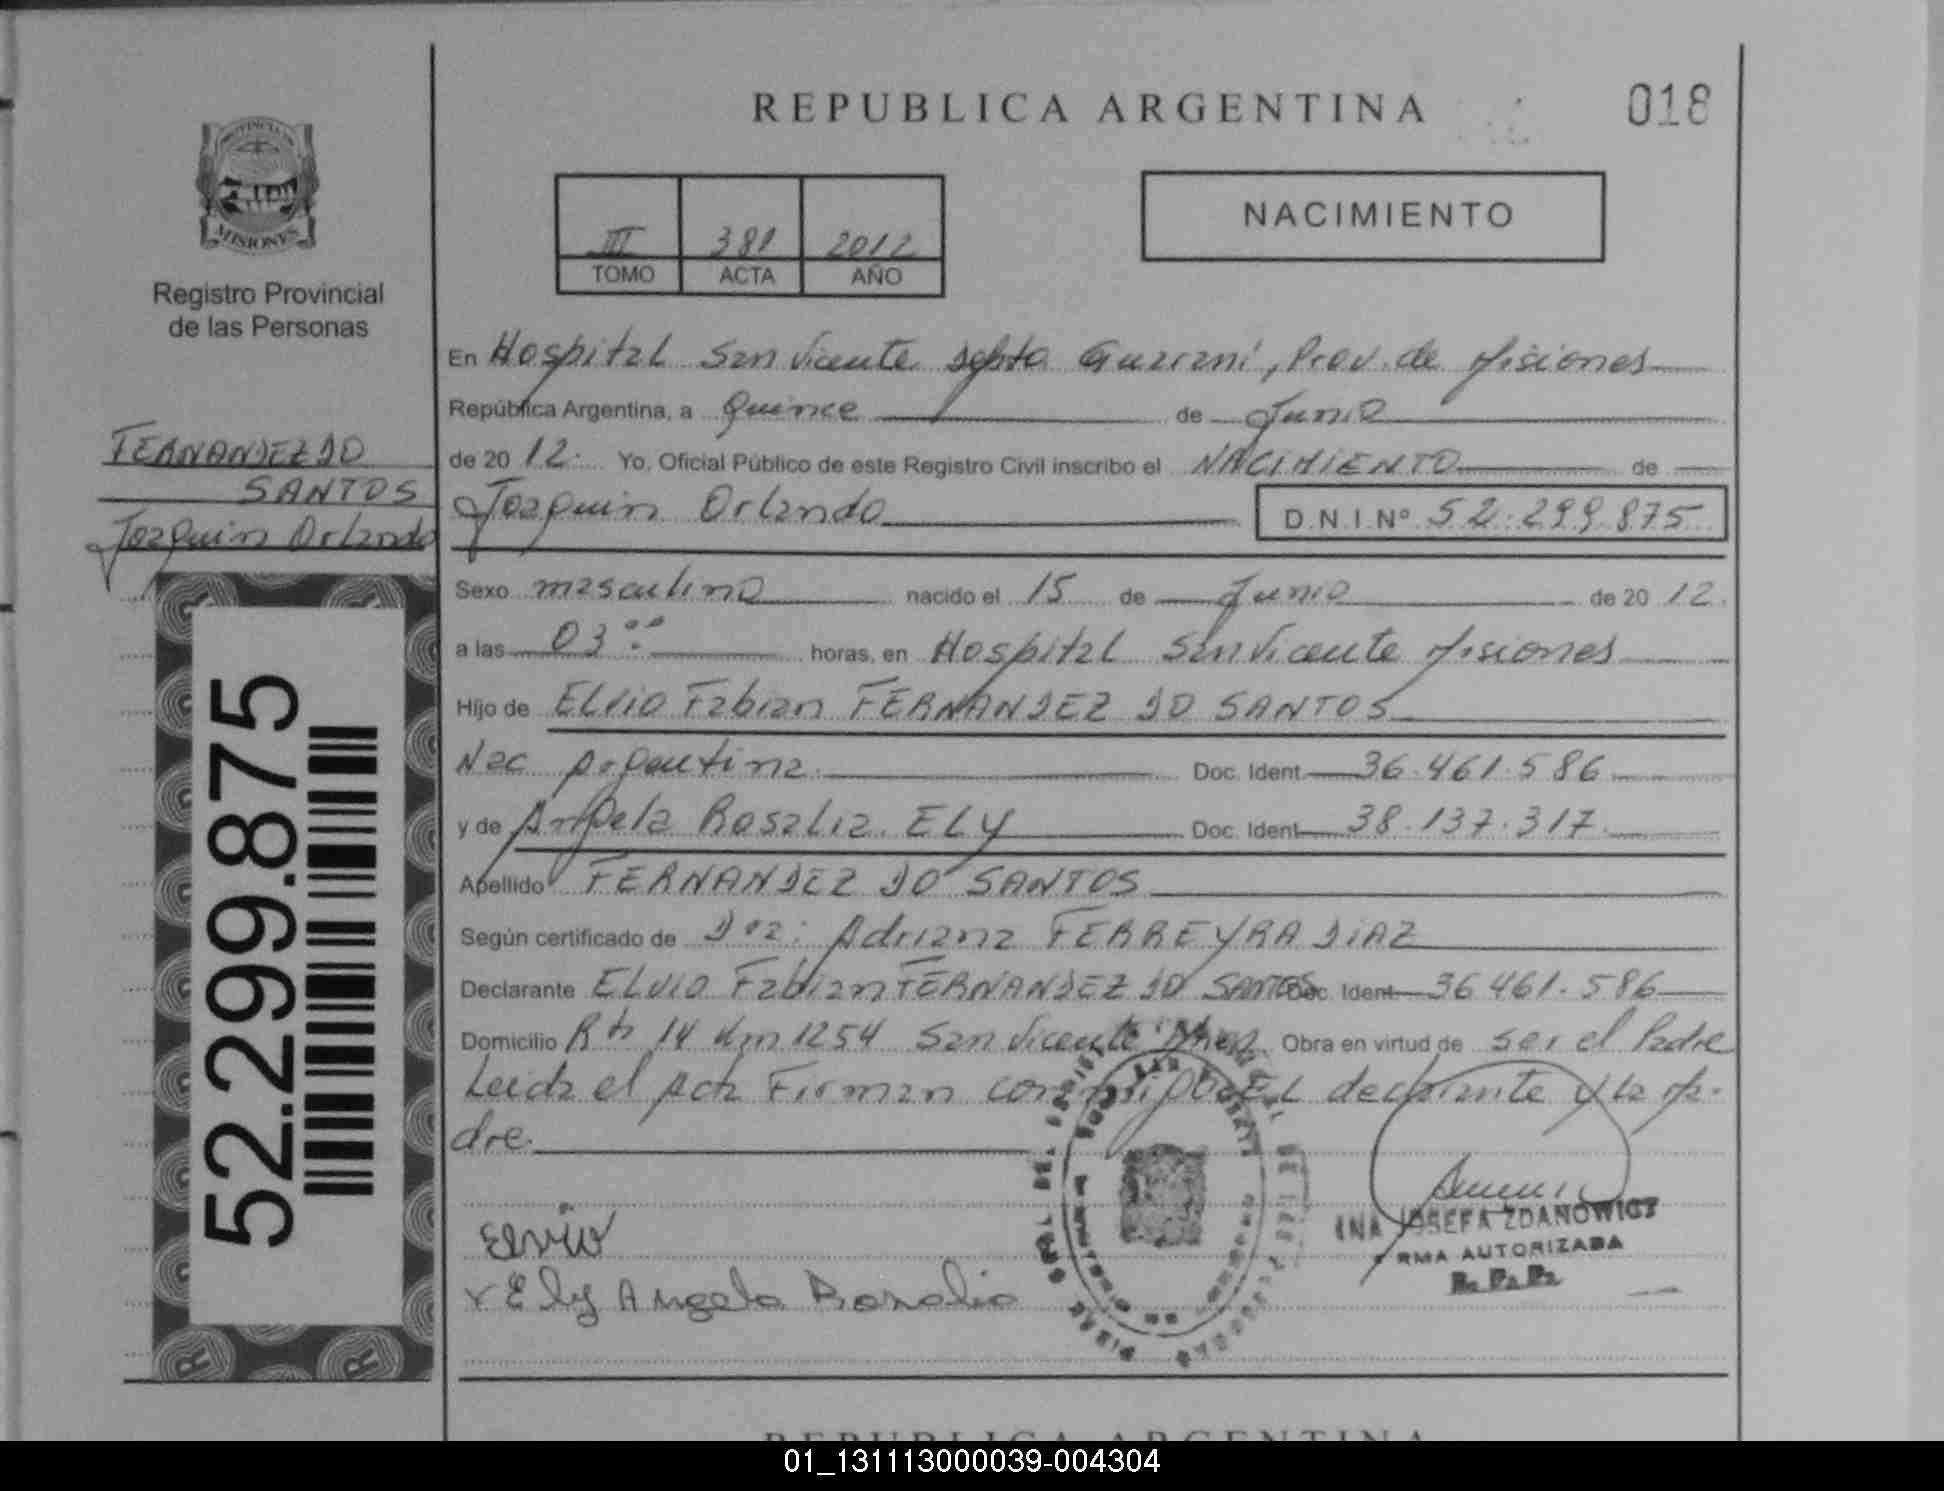 REPUBLICA ARGENTINA
018
PROVINCIA DE
MISIONES
Registro Provincial
de las Personas
III 381 2012
TOMO ACTA AÑO
NACIMIENTO
FERNANDEZ DO
SANTOS
Joaquin Orlando
52.299.875
En Hospital San Vicente Dpto Guarani, Prov. de Misiones
República Argentina, a Quince de Junio
de 20 12. Yo, Oficial Público de este Registro Civil inscribo el NACIMIENTO de
Joaquin Orlando D.N.I.Nº 52.299.875
Sexo masculino nacido el 15 de Junio de 20 12.
a las 03:00 horas, en Hospital San Vicente Misiones
Hijo de Elvio Fabian FERNANDEZ DO SANTOS
Nac Argentina. Doc. Ident 36.461.586
y de Angela Rosalia ELY Doc. Ident 38.137.317.
Apellido FERNANDEZ DO SANTOS
Según certificado de Dra: Adriana FERREYRA DIAZ
Declarante Elvio Fabian FERNANDEZ DO SANTOS Doc. Ident 36.461.586
Domicilio R N 14 Km 1254 San Vicente Mnes Obra en virtud de ser el Padre
Leida el Acta Firman conmigo EL declarante y la Ma-
dre.
Elvio
x Ely Angela Rosalia
INA JOSEFA ZDANOWICZ
FIRMA AUTORIZADA
R. P. P.
REPUBLICA ARGENTINA
01_131113000039-004304